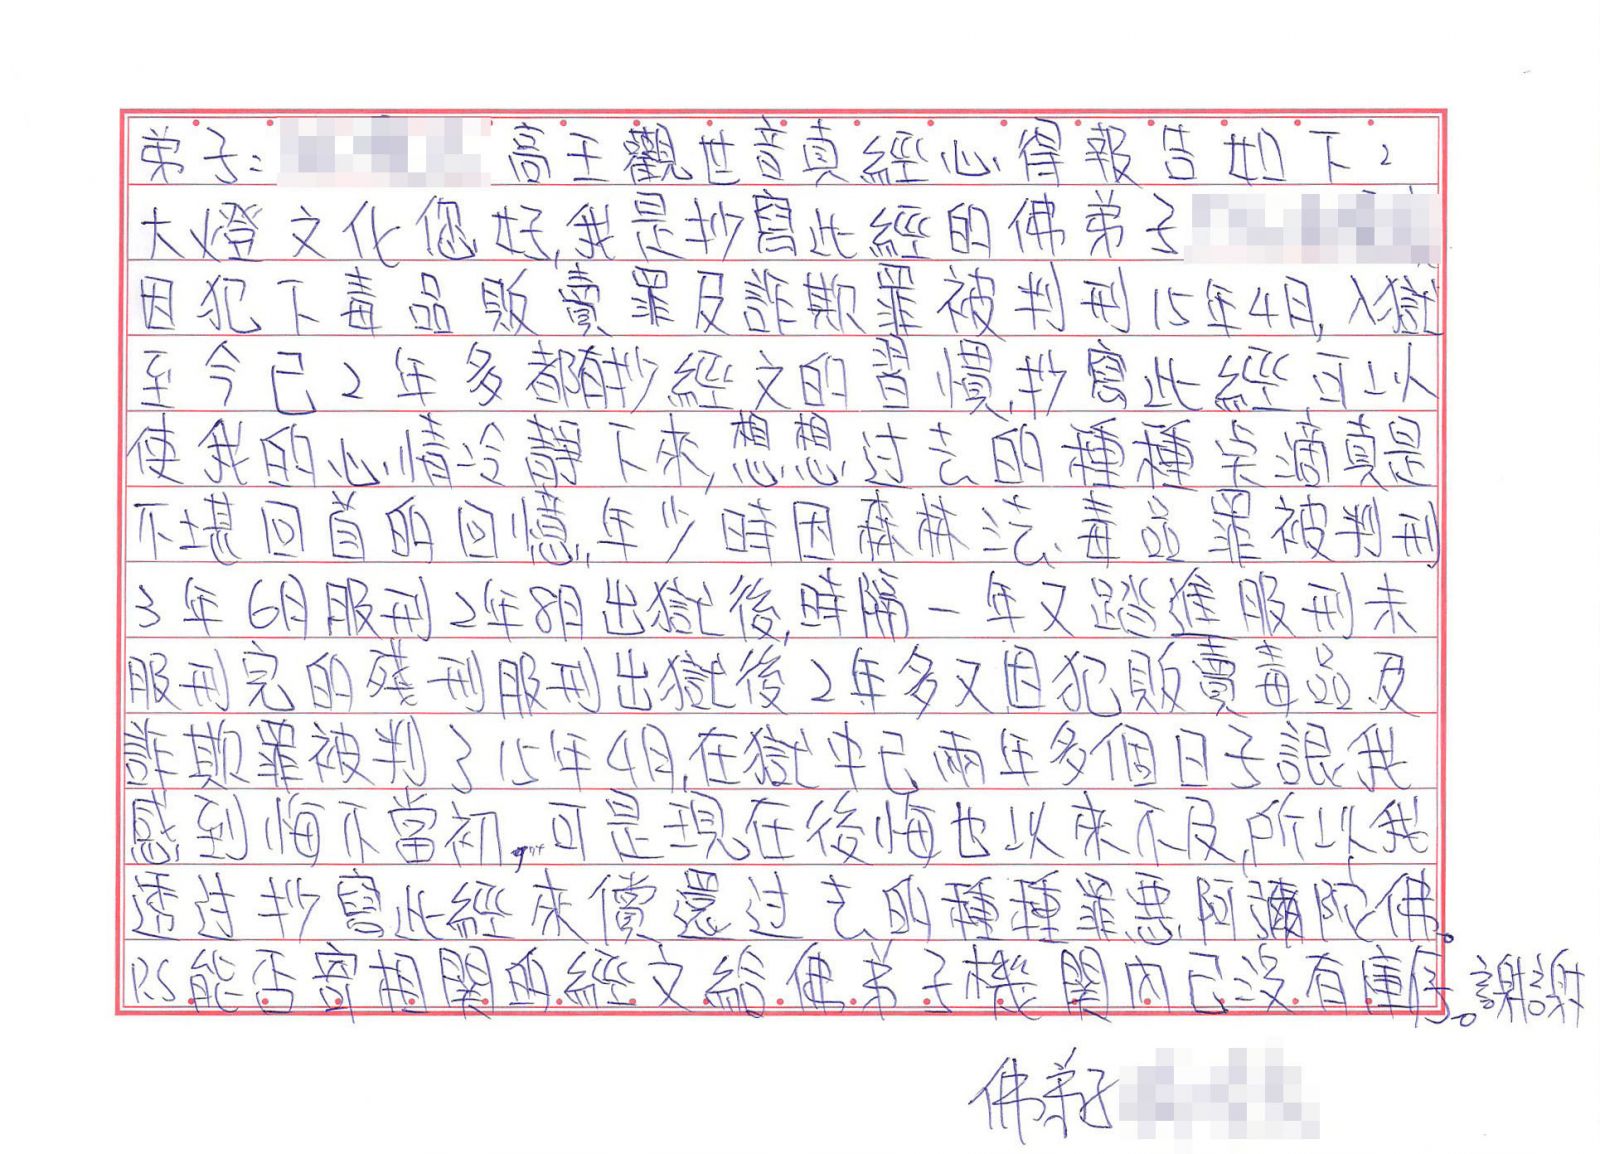 弟子: 高王觀世音真經心得報告如下:
大燈文化您好,我是抄寫此經的佛弟子
因犯下毒品販賣罪及詐欺罪被判刑15年4月,入獄
至今已2年多都有抄經文的習慣,抄寫此經可以
使我的心情冷靜下來,想想过去的種種点滴真是
不堪回首的回憶,年少時因森林法、毒品罪被判刑
3年6月服刑2年8月出獄後,時隔一年又踏進服刑未
服刑完的殘刑服刑出獄後2年多又因犯販賣毒品及
詐欺罪被判了15年4月,在獄中已兩年多個日子讓我
感到悔不當初,可是現在後悔也以來不及,所以我
透过抄寫此經來償還过去的種種罪惡,阿彌陀佛。
P.S能否寄相関的經文給佛弟子機関內已沒有庫存。謝謝
佛弟子